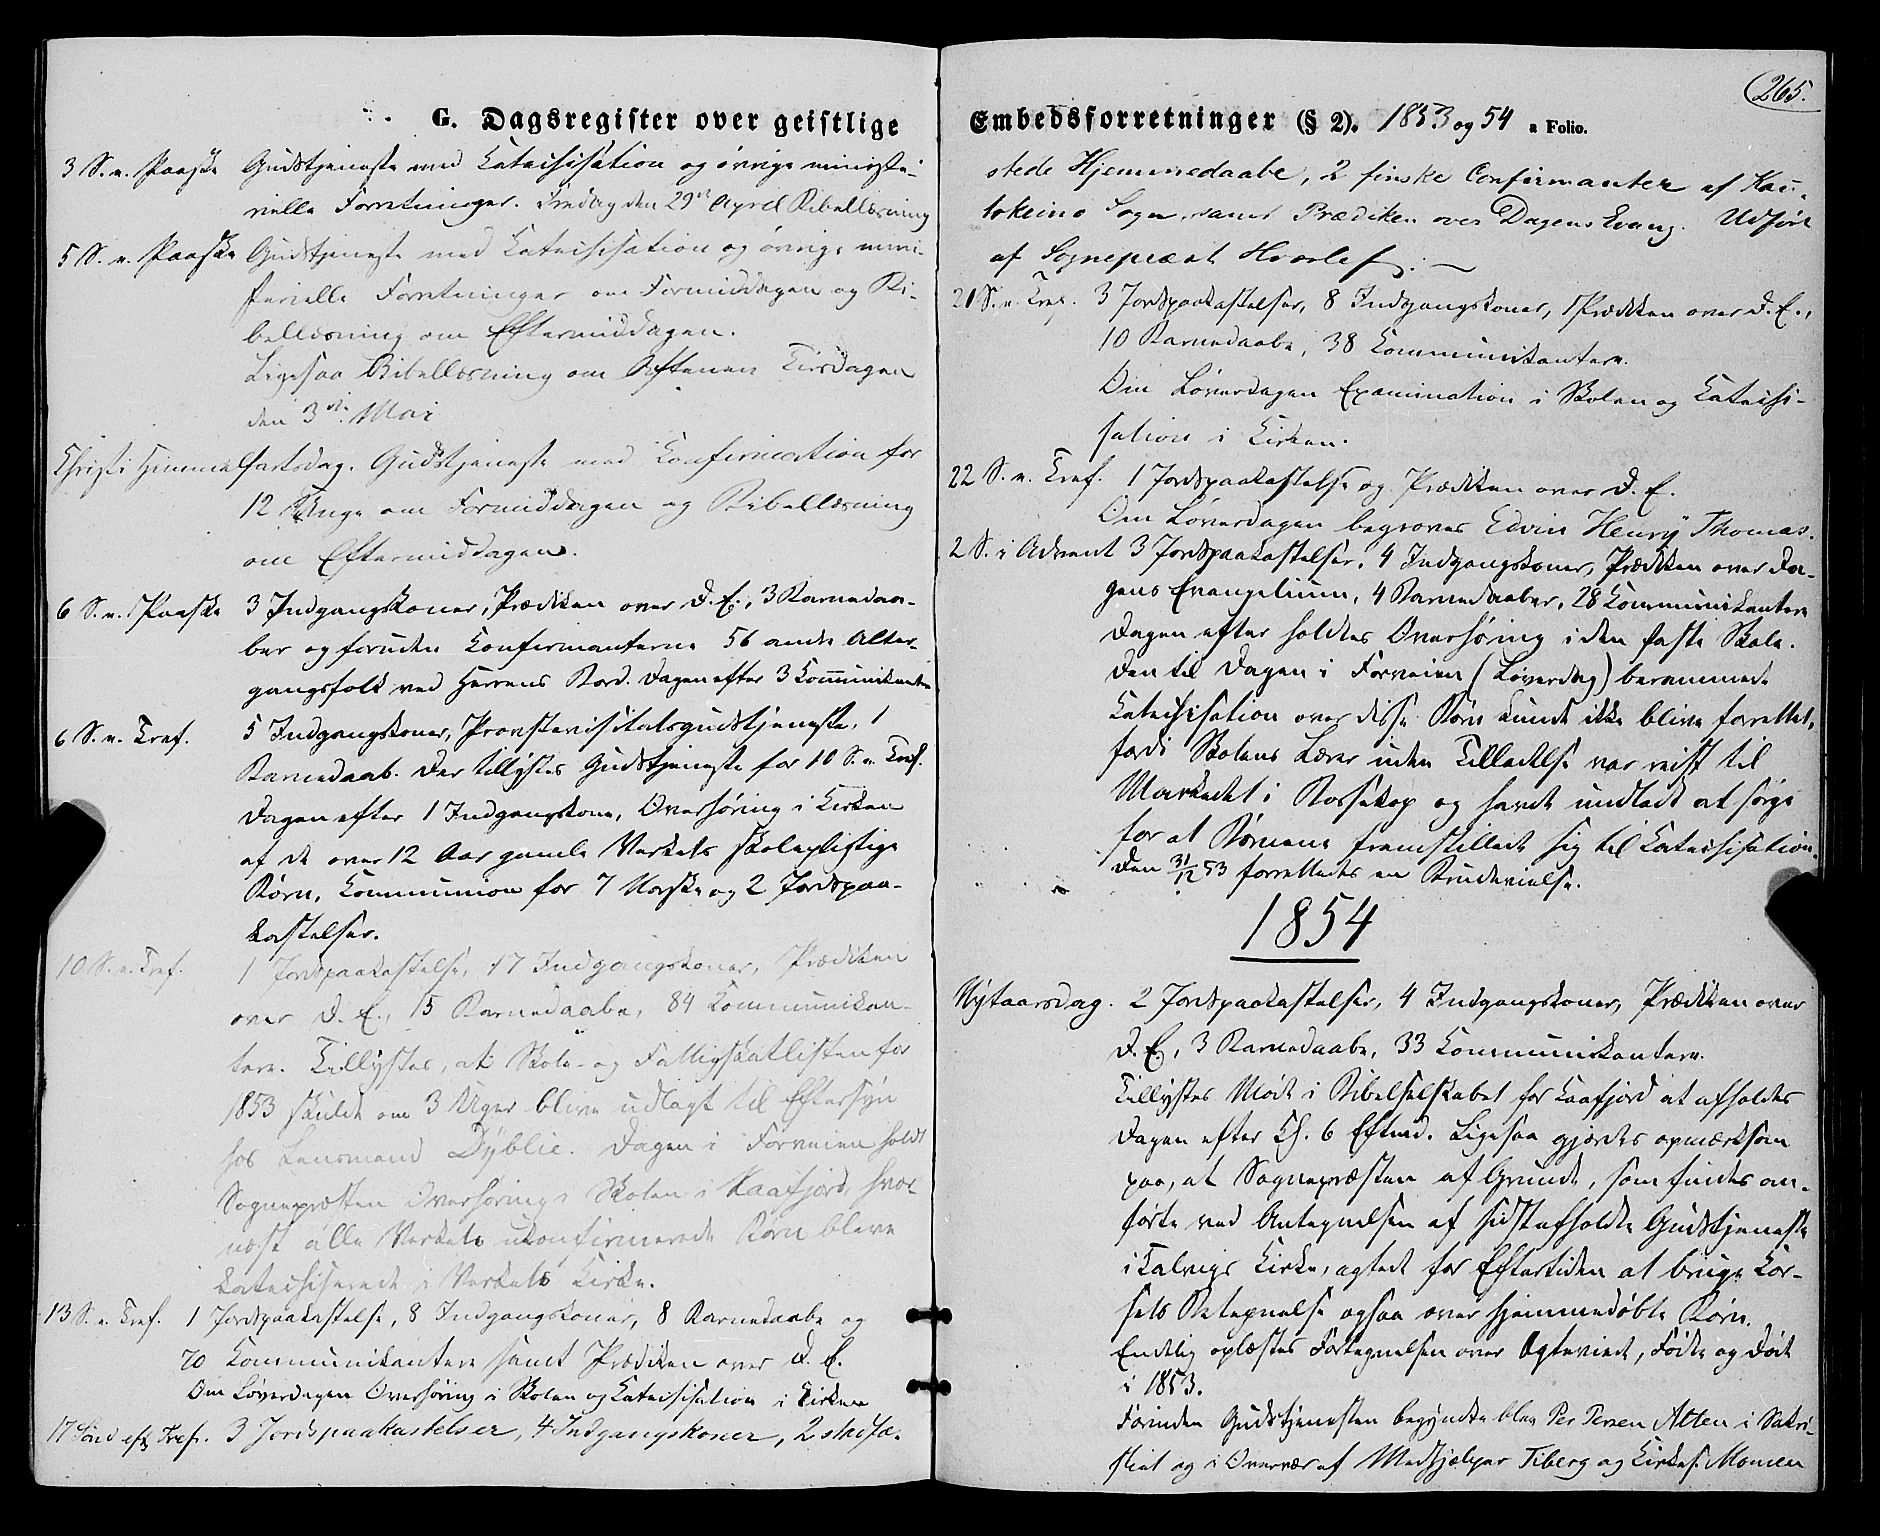 G. Dagsregister over geistlige
3 S. e. Paaske Gudstjeneste med Katechisation og øvrige ministe-
rielle Forretninger. Fredag den 29de April Bibellæsning
5 S. e. Paaske Gudstjeneste med Katechisation og øvrige mini-
sterielle Forretninger om Formiddagen og Bi-
bellæsning om Eftermiddagen.
Ligesaa Bibellæsning om Aftenen Tirsdagen
den 3die Mai
Christi Himmelfartsdag. Gudstjeneste med Konfirmation for
12 Unge om Formiddagen og Bibellæsning
om Eftermiddagen.
6 S. e. Paaske 3 Indgangskoner, Prædiken over D. E., 3 Barnedaa-
ber og foruden Konfirmanterne 56 andre Alter-
gangsfolk ved Herrens Bord. Dagen efter 3 Kommunikanter
6 S. e. Tref. 5 Indgangskoner, Provstevisitatsgudstjeneste, 1
Barnedaab. Der tillystes Gudstjeneste for 10 S. e. Tref.
Dagen efter 1 Indgangskone, Overhøring i Kirken
af de over 12 Aar gamle Verkets skolepligtige
Børn, Kommunion for 7 Norske og 2 Jordspaa-
kastelser.
10 S. e. Tref. 1 Jordspaakastelse, 17 Indgangskoner, Prædiken
over D. E., 15 Barnedaabe, 84 Kommunikan-
tere. Tillystes, at Skole- og Fattigskatlisten for
1853 skulde om 3 Uger blive udlagt til Eftersyn
hos Lensmand Dyblie. Dagen i Forveien holdt
Sognepræsten Overhøring i Skolen i Kaafjord, hvor
næst alle Verkets ukonfirmerede Børn bleve
katechiserede i Verkets Kirke.
13 S. e. Tref. 1 Jordspaakastelse, 8 Indgangskoner, 8 Barnedaabe og
70 Kommunikantere samt Prædiken over D. E.
Om Løverdagen Overhøring i Skolen og Katechisation i Kirken
17 Sønd eft Tref. 3 Jordspaakastelser, 4 Indgangskoner, 2 stadfæ-
265.
Embedsforretninger (§ 2). 1853 og 54 a Folio.
stede Hjemmedaabe, 2 finske Confirmanter af Kau-
tokeino Sogn, samt Prædiken over Dagens Evang. Udført
af Sognepræst Hvoslef. —
21 S. e. Tref. 3 Jordspaakastelser, 8 Indgangskoner, Prædiken over D. E.,
10 Barnedaabe, 38 Kommunikantere.
Om Løverdagen Examination i Skolen og Katechi-
sation i Kirken.
22 S. e. Tref. 1 Jordspaakastelse og Prædiken over D. E.
Om Løverdagen begroves Edvin Henry Thomas.
2 S. i Advent 3 Jordspaakastelser, 4 Indgangskoner, Prædiken over Da-
gens Evangelium, 4 Barnedaaber, 28 Kommunikantere
Dagen efter holdtes Overhøring i den faste Skole.
Den til Dagen i Forveien (Løverdag) berammede
Katechisation over disse Børn kunde ikke blive forrettet,
fordi Skolens Lærer uden Tilladelse var reist til
Markedet i Bossekop og havde undladt at sørge
for at Børnene fremstillede sig til Katechisation.
Den 31/12 53 forrettedes en Brudevielse.
1854
Nytaarsdag. 2 Jordspaakastelser, 4 Indgangskoner, Prædiken over
D. E., 3 Barnedaabe, 33 Kommunikantere.
Tillystes Møde i Bibelselskabet for Kaafjord at afholdes
Dagen efter Kl. 6 Eftmd. Ligesaa gjordes opmærksom
paa, at Sognepræsten af Grunde, som findes an-
førte ved Antegnelsen af sidstafholdte Gudstjeneste
i Talvigs Kirke, agtede for Eftertiden at bruge Kor-
sets Betegnelse ogsaa over hjemmedøbte Børn.
Endelig oplæstes Fortegnelsen over Ægteviede, Fødte og Døde
i 1853.
Forinden Gudstjenesten begyndte blev Per Persen Alten i Sakri-
stiet og i Overvær af Medhjælper Tiberg og Kirkes. Monsen